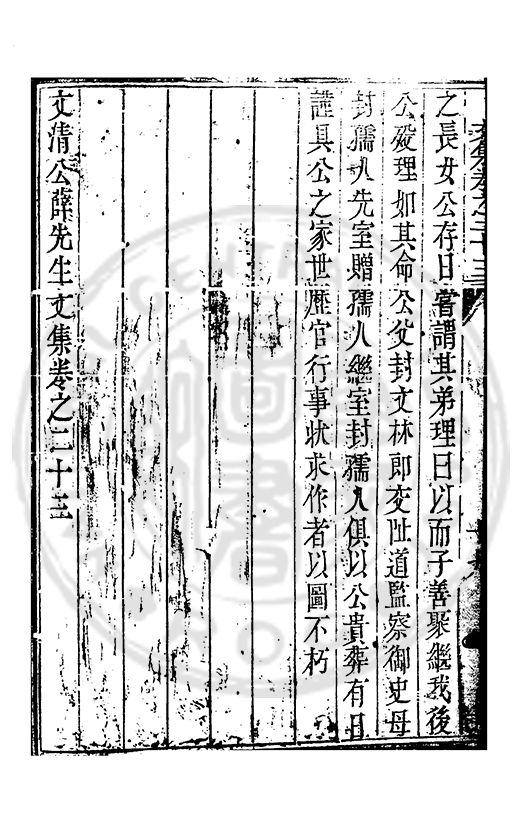 之長女公存日嘗謂其弟理曰以而子善聚繼我後
公歿理如其命公父封文林郎交阯道監察御史母
封孺人先室贈孺人繼室封孺人俱以公貴葬有日
謹具公之家世歷官行事狀求作者以圖不朽
文清公薛先生文集卷之二十三